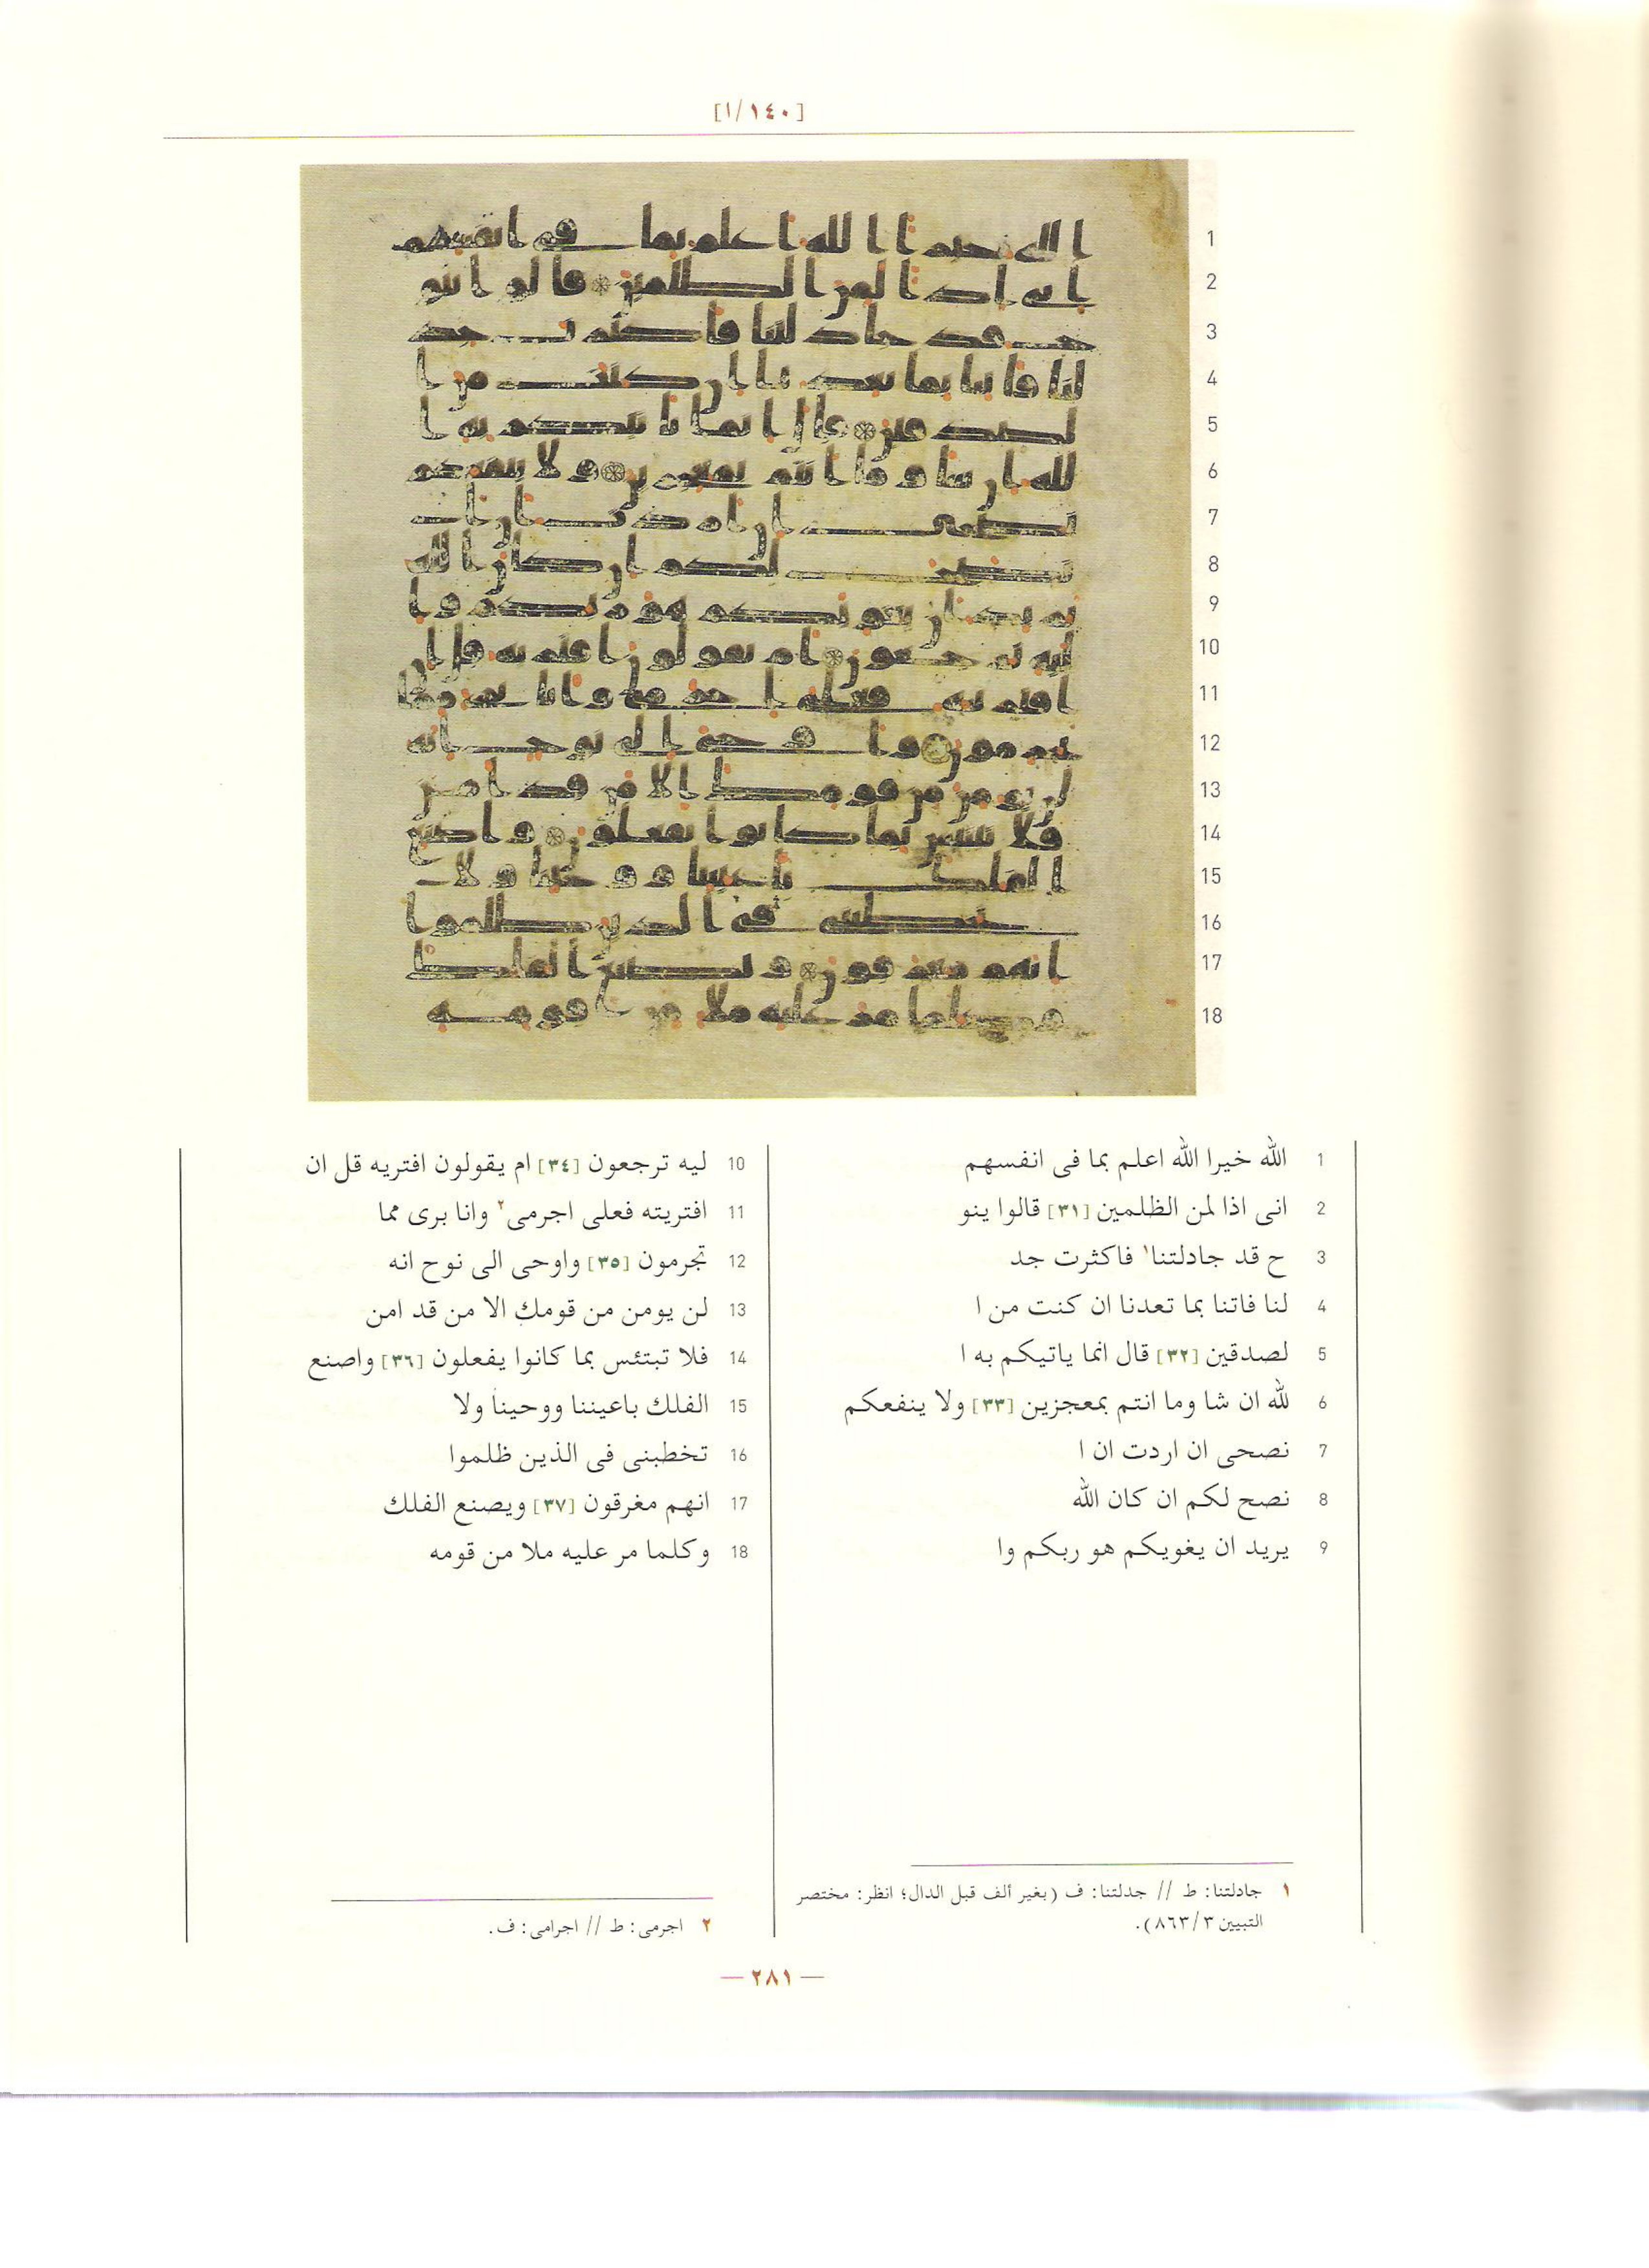 [١٤٠/ا]
1 الله خيرا الله اعلم بما فى انفسهم
2 انى اذا لمن الظلمين [٣١] قالوا ينو
3 ح قد جادلتنا١ فاكثرت جد
4 لنا فاتنا بما تعدنا ان كنت من ا
5 لصدقين [٣٢] قال انما ياتيكم به ا
6 لله ان شا وما انتم بمعجزين [٣٣] ولا ينفعكم
7 نصحى ان اردت ان ا
8 نصح لكم ان كان الله
9 يريد ان يغويكم هو ربكم وا
10 ليه ترجعون [٣٤] ام يقولون افتريه قل ان
11 افتريته فعلى اجرمى٢ وانا برى مما
12 تجرمون [٣٥] واوحى الى نوح انه
13 لن يومن من قومك الا من قد امن
14 فلا تبتئس بما كانوا يفعلون [٣٦] واصنع
15 الفلك باعيننا ووحينا ولا
16 تخطبنى فى الذين ظلموا
17 انهم مغرقون [٣٧] ويصنع الفلك
18 وكلما مر عليه ملا من قومه
١ جادلتنا: ط // جدلتنا: ف (بغير ألف قبل الدال؛ انظر: مختصر
التبيين ٨٦٣/٣).
٢ اجرمى: ط // اجرامى: ف.
— ٢٨١ —